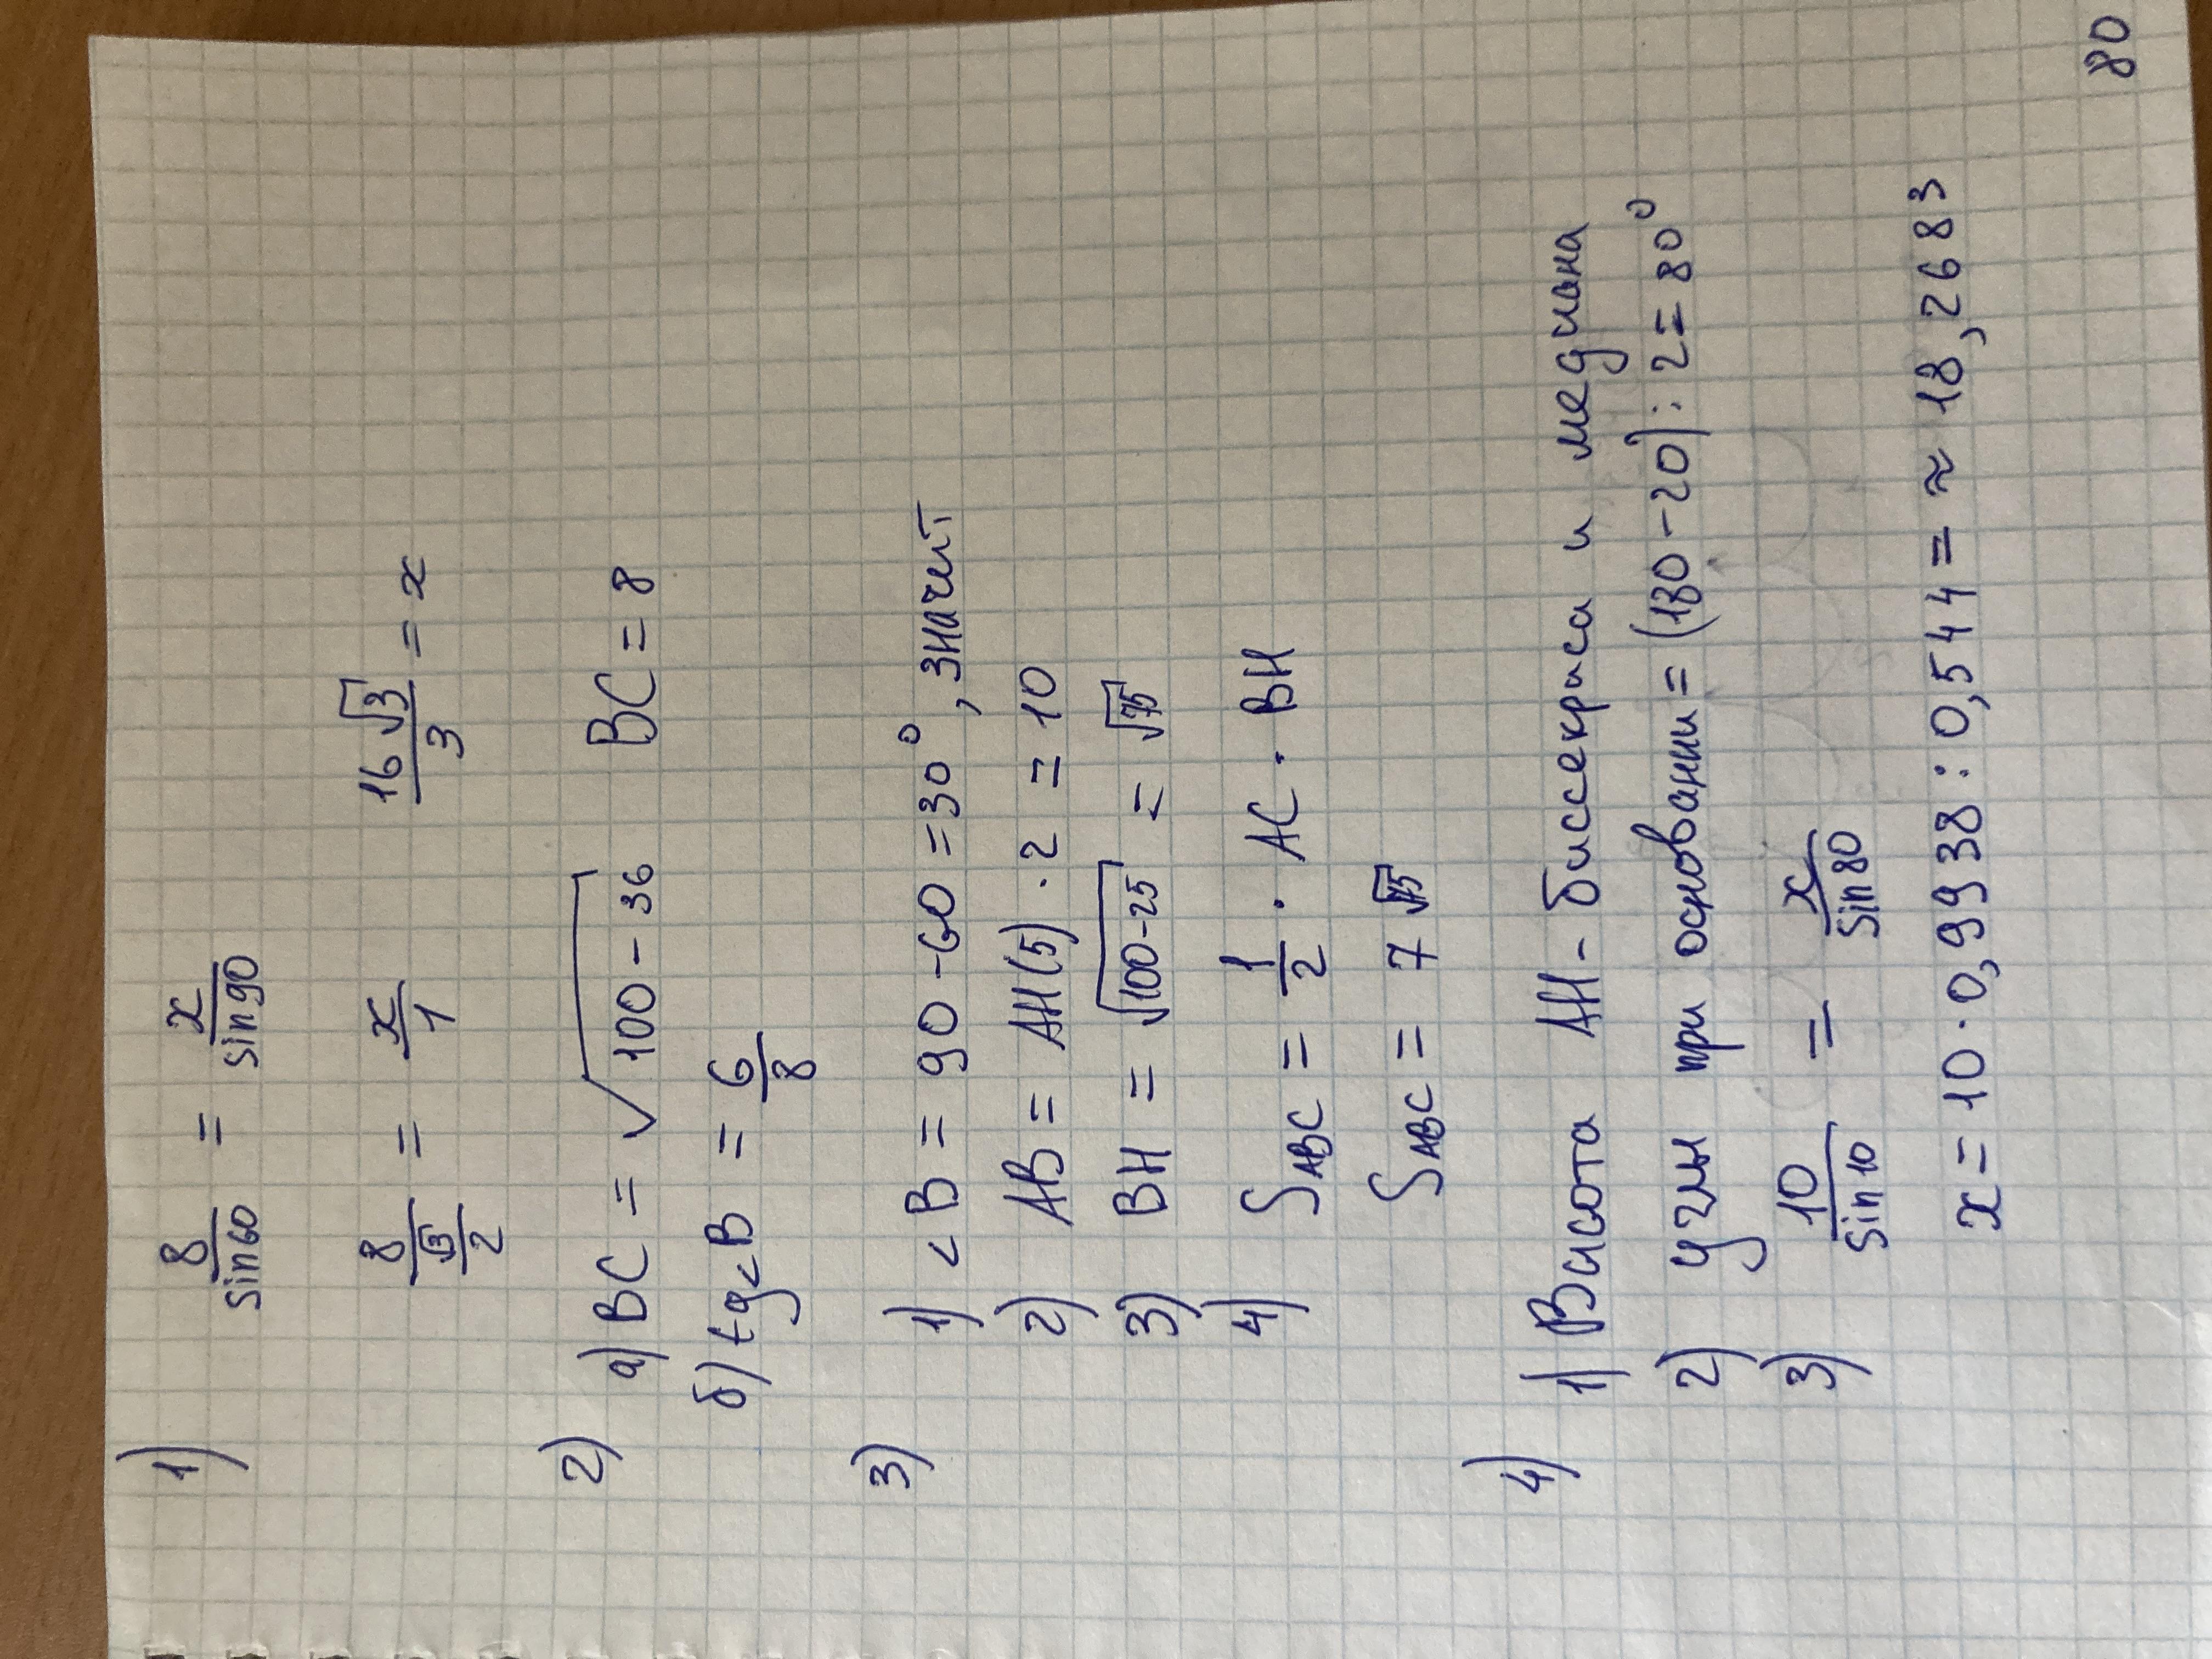 1) 8/sin60 = x/sin90
8/(√3/2) = x/1 16√3/3 = x
2) а) BC = √100-36 BC = 8
б) tg<B = 6/8
3) 1) <B = 90-60 = 30°, значит
2) AB = AH(5) · 2 = 10
3) BH = √100-25 = √75
4) S ABC = 1/2 · AC · BH
S ABC = 7√75
4) 1) Высота AH - биссекриса и медиана
2) углы при основании = (180-20):2 = 80°
3) 10/sin10 = x/sin80
x = 10 · 0,9938 : 0,544 = ≈ 18,2683
80